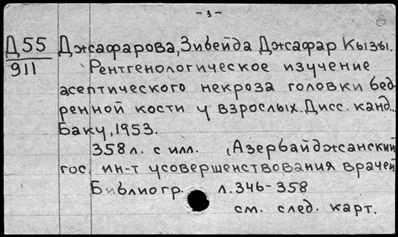 - 1 -
Д55 Джафарова, Зибейда Джафар Кызы.
911 Рентгенологическое изучение
асептического некроза головки бед-
ренной кости у взрослых. Дисс. канд.
Баку, 1953.
358 л. с илл. (Азербайджанский
гос. ин-т усовершенствования врачей
Библиогр. л. 346-358
см. след. карт.